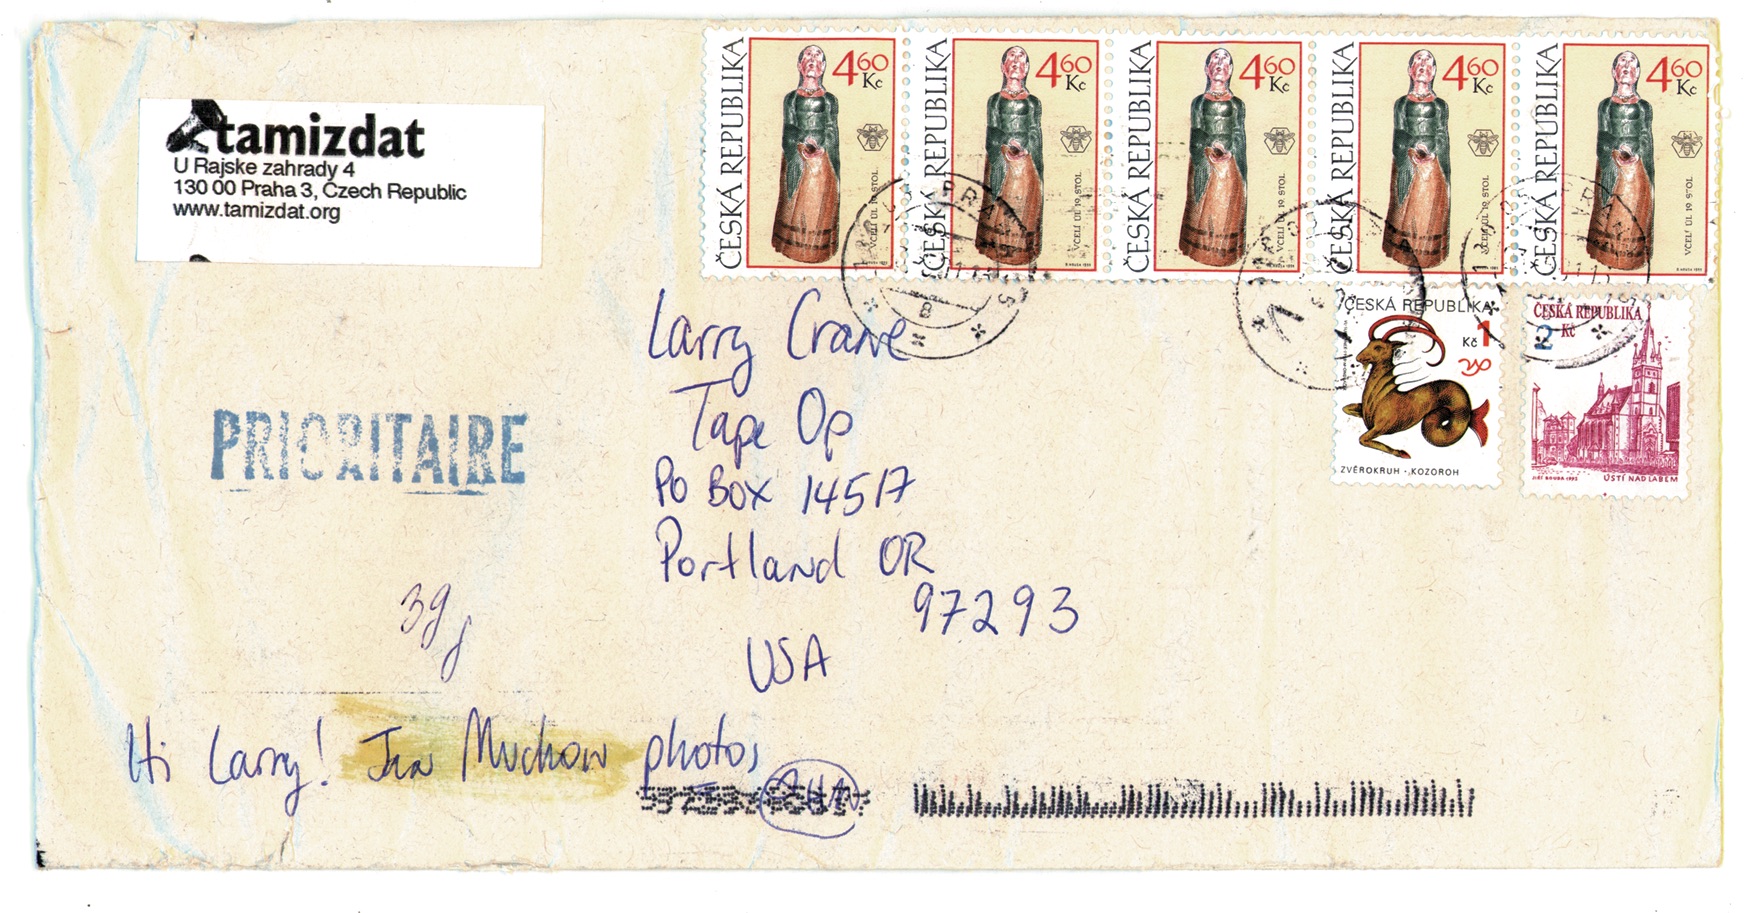 tamizdat
U Rajske zahrady 4
130 00 Praha 3, Czech Republic
www.tamizdat.org
ČESKÁ REPUBLIKA
4 60
Kč
VČELÍ ÚL 19. STOL.
ČESKÁ REPUBLIKA
4 60
Kč
VČELÍ ÚL 19. STOL.
ČESKÁ REPUBLIKA
4 60
Kč
VČELÍ ÚL 19. STOL.
ČESKÁ REPUBLIKA
4 60
Kč
VČELÍ ÚL 19. STOL.
ČESKÁ REPUBLIKA
4 60
Kč
VČELÍ ÚL 19. STOL.
ČESKÁ REPUBLIKA
Kč 1
ZVĚROKRUH - KOZOROH
ČESKÁ REPUBLIKA
2 Kč
JIŘÍ BOUDA 1993 ÚSTÍ NAD LABEM
PRIORITAIRE
Larry Crane
Tape Op
PO Box 14517
Portland OR
97293
USA
39g
Hi Larry! Jan Muchow photos